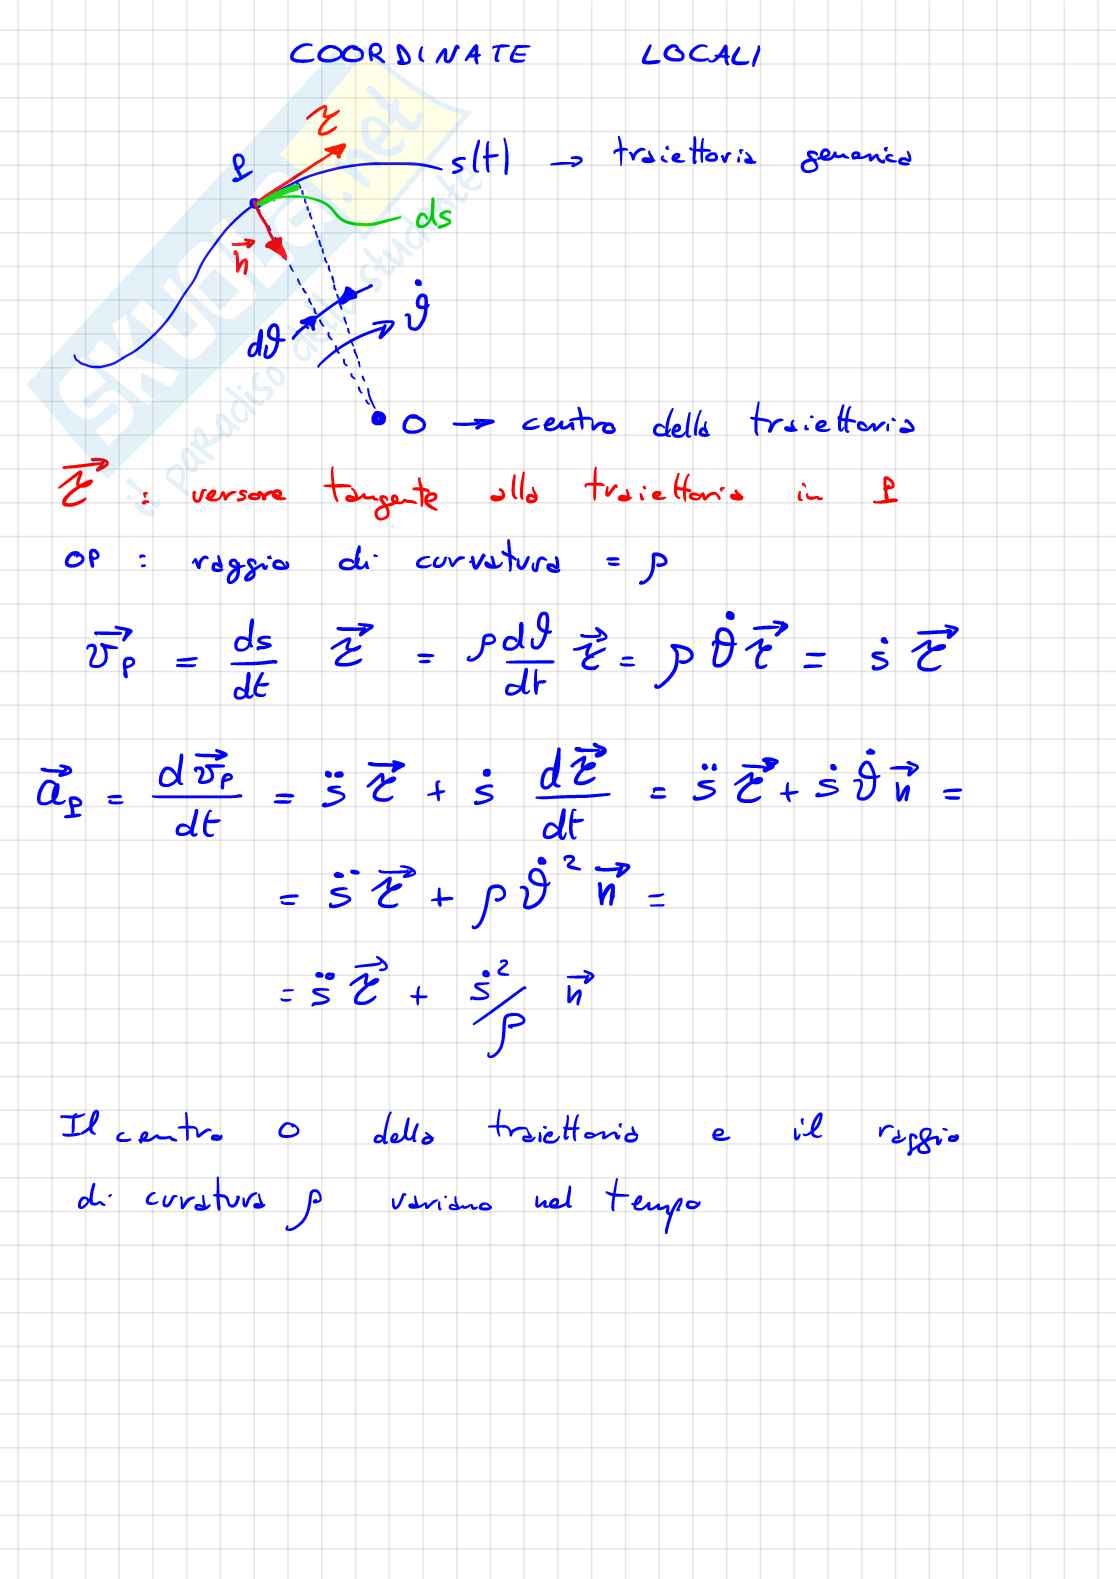 COORDINATE LOCALI
τ
P
s(t) → traiettoria generica
ds
n⃗
ϑ̇
dϑ
O → centro della traiettoria
τ⃗ : versore tangente alla traiettoria in P
OP : raggio di curvatura = ρ
v⃗_P = ds/dt τ⃗ = ρ dϑ/dt τ⃗ = ρ ϑ̇ τ⃗ = ṡ τ⃗
a⃗_P = dv⃗_P/dt = s̈ τ⃗ + ṡ dτ⃗/dt = s̈ τ⃗ + ṡ ϑ̇ n⃗ =
= s̈ τ⃗ + ρ ϑ̇² n⃗ =
= s̈ τ⃗ + ṡ²/ρ n⃗
Il centro O della traiettoria e il raggio
di curvatura ρ variano nel tempo
SKUOLA.net
il paradiso dello studente